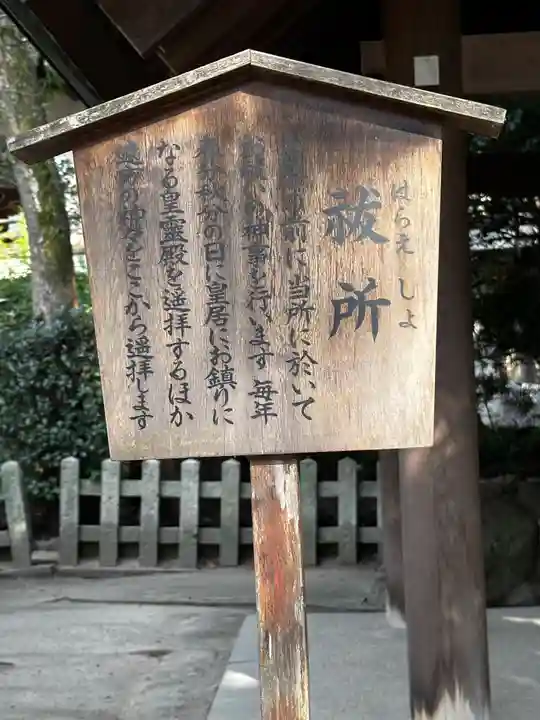 祓所
はらえ しよ
前に当所に於いて
神事を行います 毎年
春分秋分の日に皇居にお鎮りに
なる皇霊殿を遥拝するほか
遠方の神々をここから遥拝します